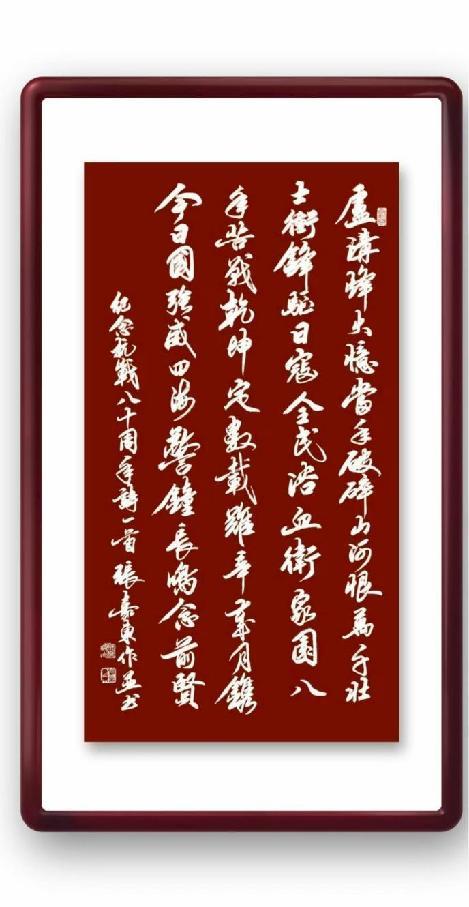 盧溝烽火憶當年破碎山河恨萬千壯
士衝鋒驅日寇全民浴血衛家園八
年苦戰乾坤定數載艱辛歲月鐫
今日國強威四海警鐘長鳴念前賢
紀念抗戰八十周年詩一首張東作並書